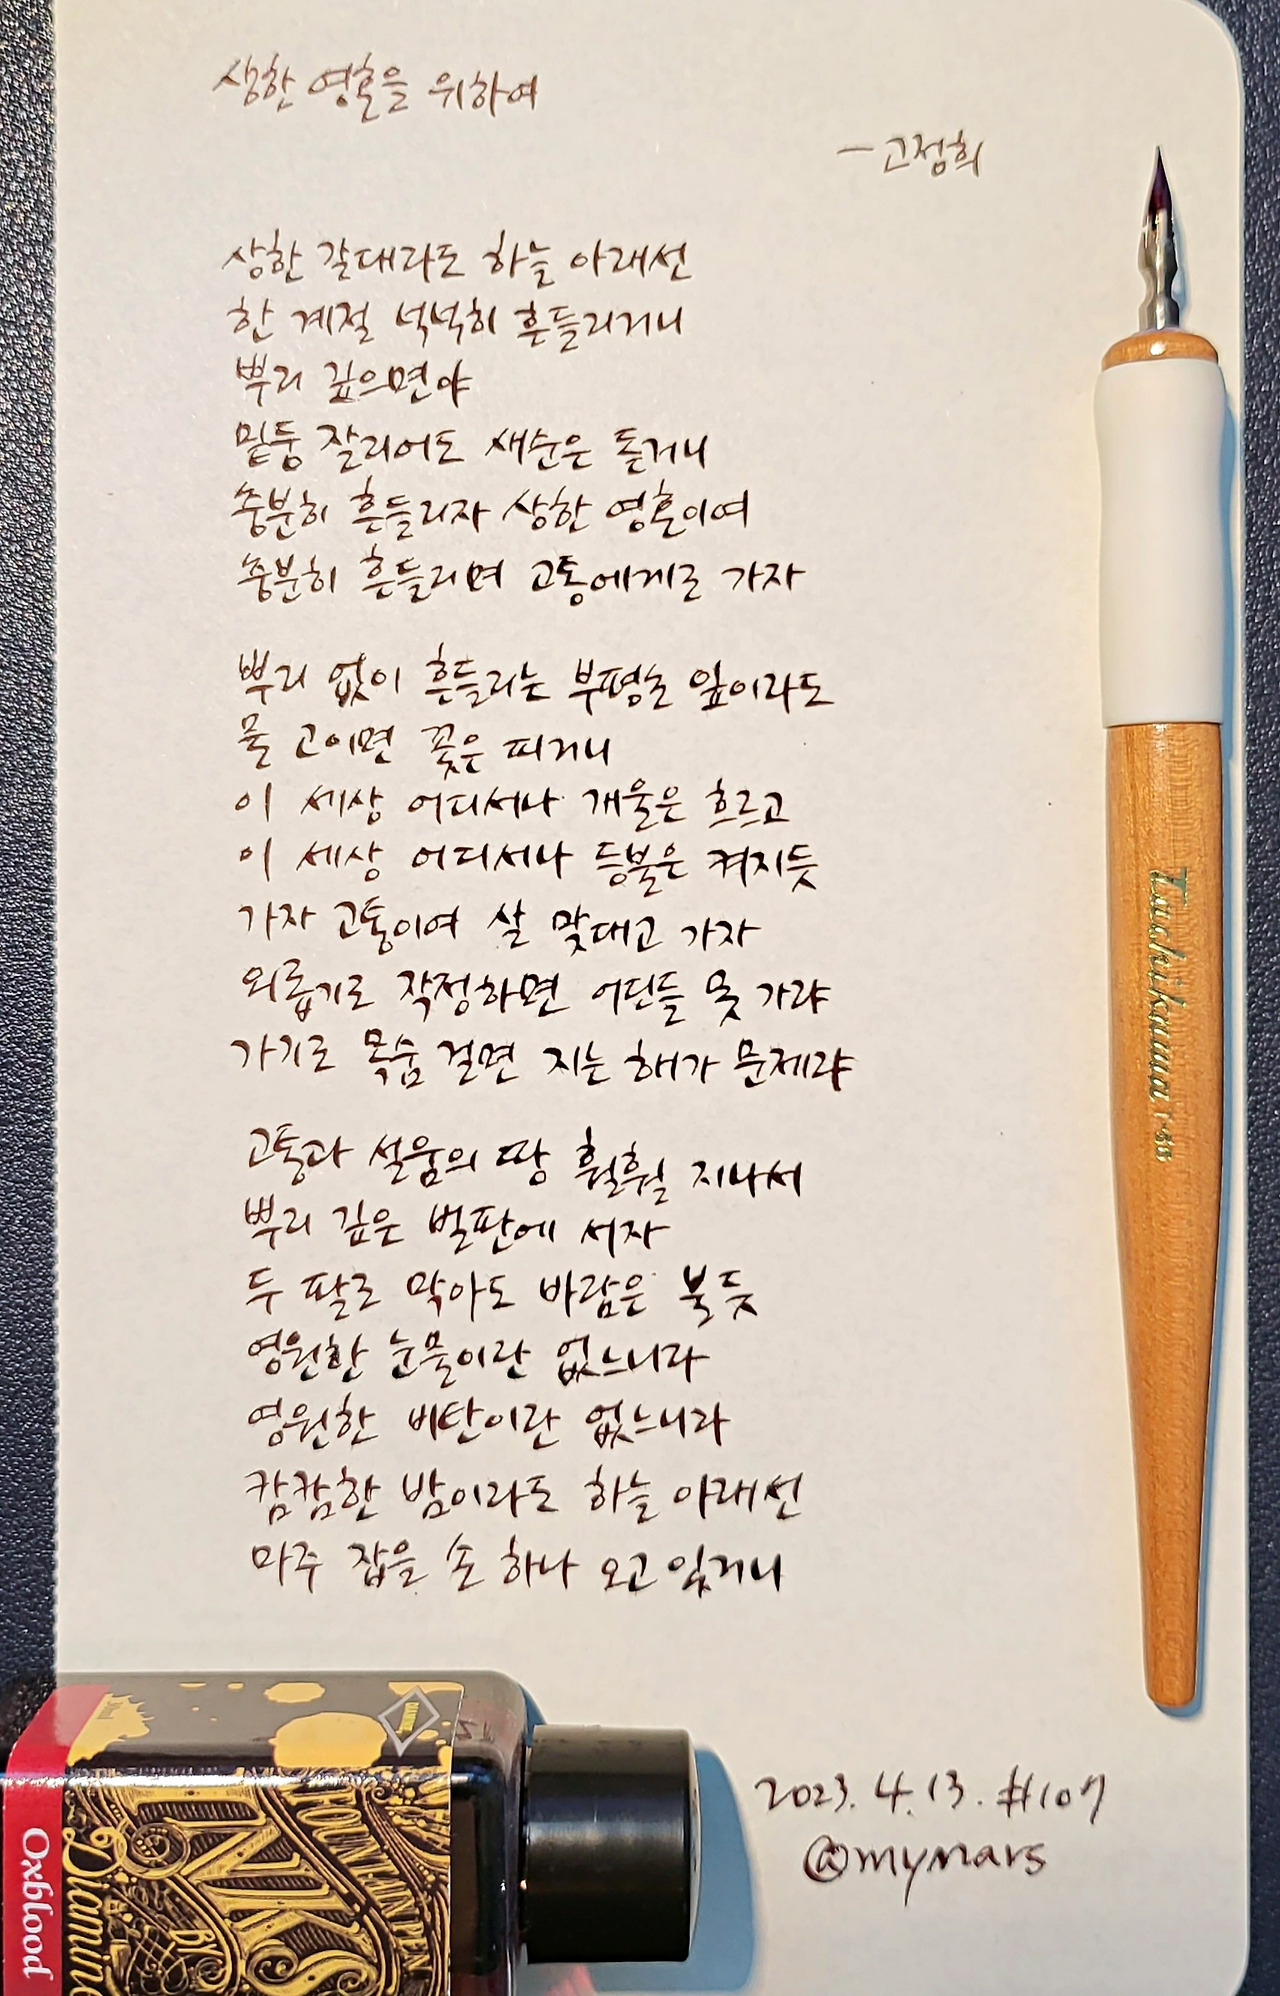 상한 영혼을 위하여
— 고정희
상한 갈대라도 하늘 아래선
한 계절 넉넉히 흔들리거니
뿌리 깊으면야
밑둥 잘리어도 새순은 돋거니
충분히 흔들리자 상한 영혼이여
충분히 흔들리며 고통에게로 가자
뿌리 없이 흔들리는 부평초 잎이라도
물 고이면 꽃은 피거니
이 세상 어디서나 개울은 흐르고
이 세상 어디서나 등불은 켜지듯
가자 고통이여 살 맞대고 가자
외롭기로 작정하면 어딘들 못 가랴
가기로 목숨 걸면 지는 해가 문제랴
고통과 설움의 땅 훨훨 지나서
뿌리 깊은 벌판에 서자
두 팔로 막아도 바람은 불듯
영원한 눈물이란 없느니라
영원한 비탄이란 없느니라
캄캄한 밤이라도 하늘 아래선
마주 잡을 손 하나 오고 있거니
Tachikawa T-40
2023. 4. 13. #107
@mymars
30ml
FOUNTAIN PEN
INKS
BY
Diamine
Oxblood